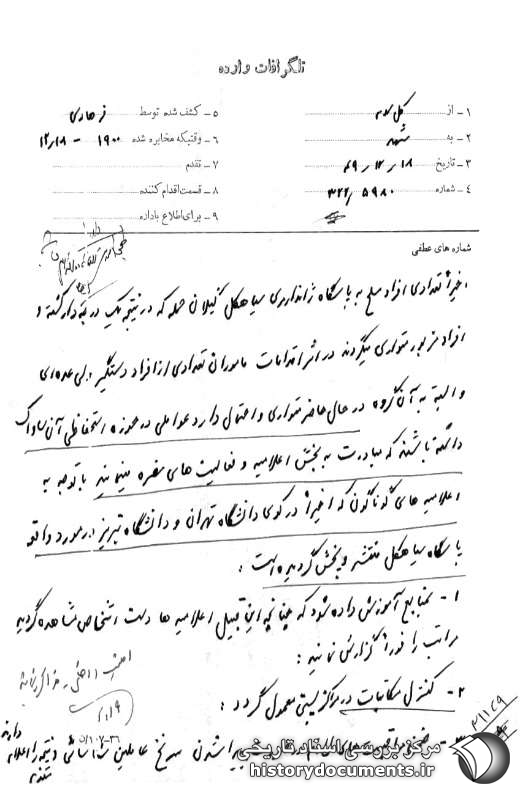 تلگرافات وارده
۱ - از کل سوم
۵ - کشف شده توسط
۲ - به مشهد
۶ - وقتیکه مخابره شده ۱۹۰۰ - ۱۲/۱۸
۳ - تاریخ ۱۸ ر ۱۲ ر ۴۹
۷ - تقدم
۴ - شماره ۳۲۲/۵۹۸۰
۸ - قسمت اقدام کننده
۹ - برای اطلاع باداره
شماره های عطفی
اخیراً تعدادی افراد مسلح به پاسگاه ژاندارمری سیاهکل گیلان حمله که در نتیجه یک درجه‌دار کشته و
افراد مزبور متواری میگردند در اثر اقدامات ماموران تعدادی از افراد دستگیر ولی عده‌ای
وابسته به آن گروه در حال حاضر متواری و احتمال دارد عواملی در حوزه استحفاظی آن ساواک
داشته باشند که مبادرت به پخش اعلامیه و فعالیت های مضره نمایند با توجه به
اعلامیه های گوناگون که اخیراً در کوی دانشگاه تهران و دانشگاه تبریز در مورد واقعه
پاسگاه سیاهکل منتشر و پخش گردیده است :
۱ - بمنابع آموزش داده شود که چنانچه این قبیل اعلامیه ها دست اشخاص مشاهده گردید
مراتب را فوراً گزارش نمایند :
۲ - کنترل مکاتبات در مراکز پستی معمول گردد :
سرنخ عاملین شناسائی و نتیجه را اعلام
دارند
مرکز بررسی اسناد تاریخی
historydocuments.ir